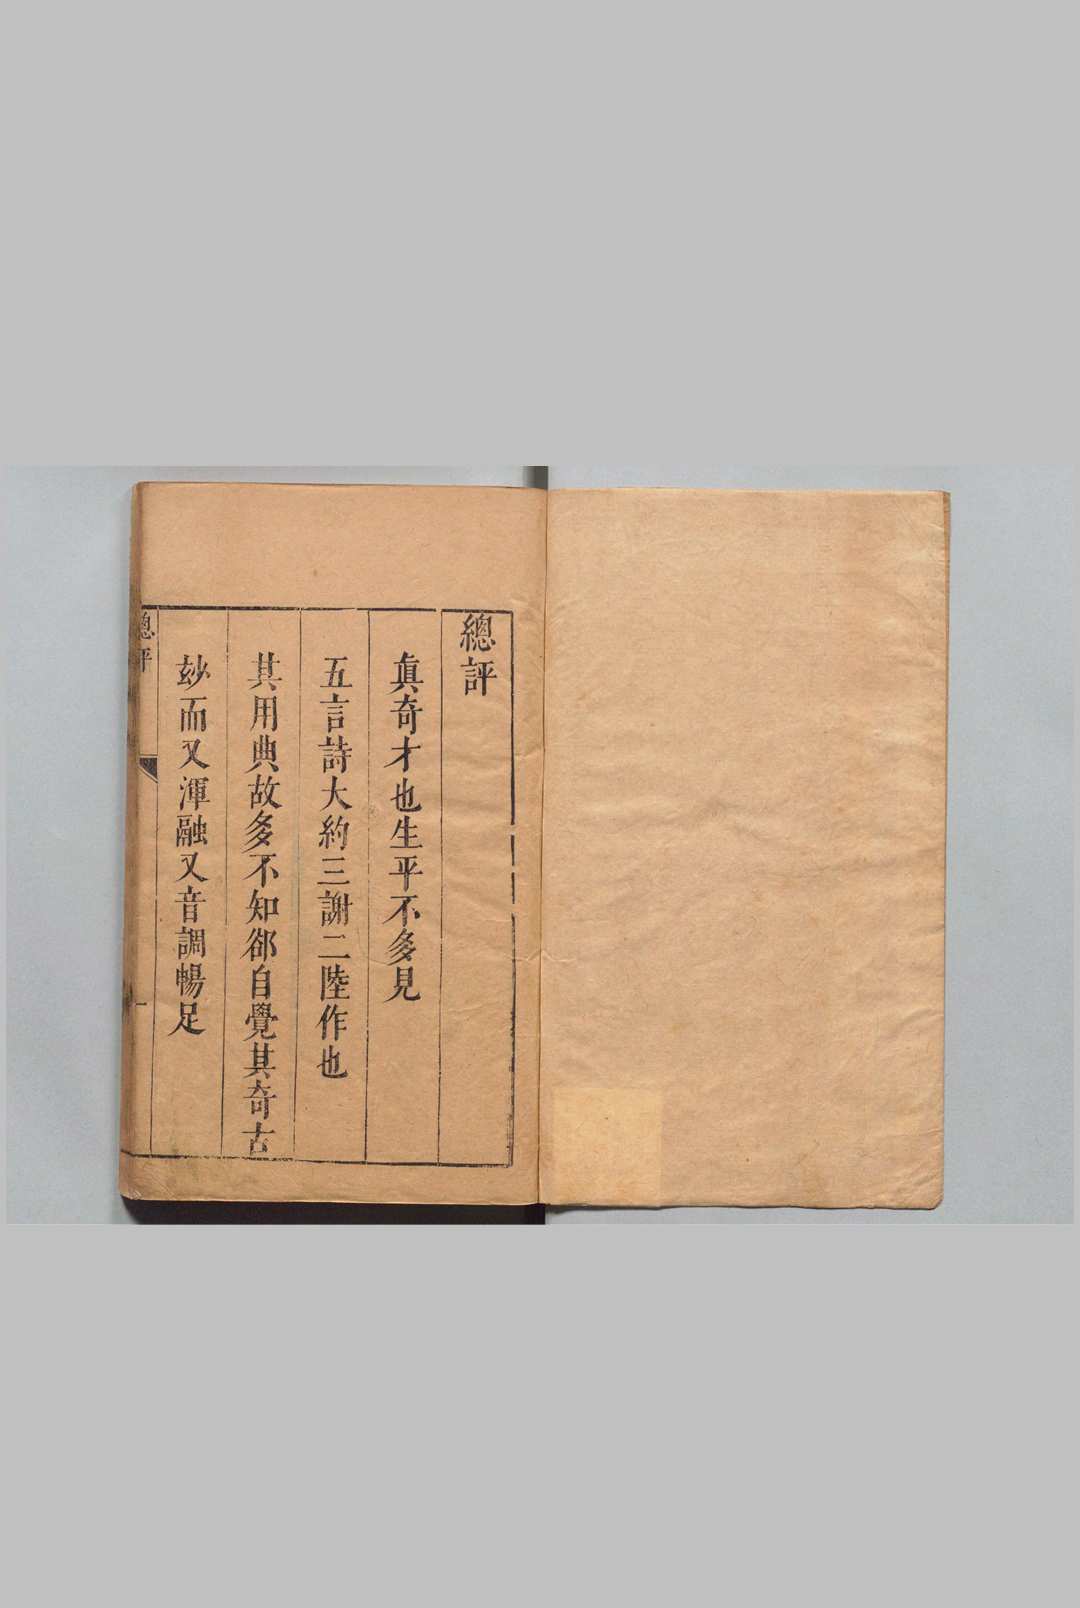 總評
真奇才也生平不多見
五言詩大約三謝二陸作也
其用典故多不知卻自覺其奇古
玅而又渾融又音調暢足
總評
一